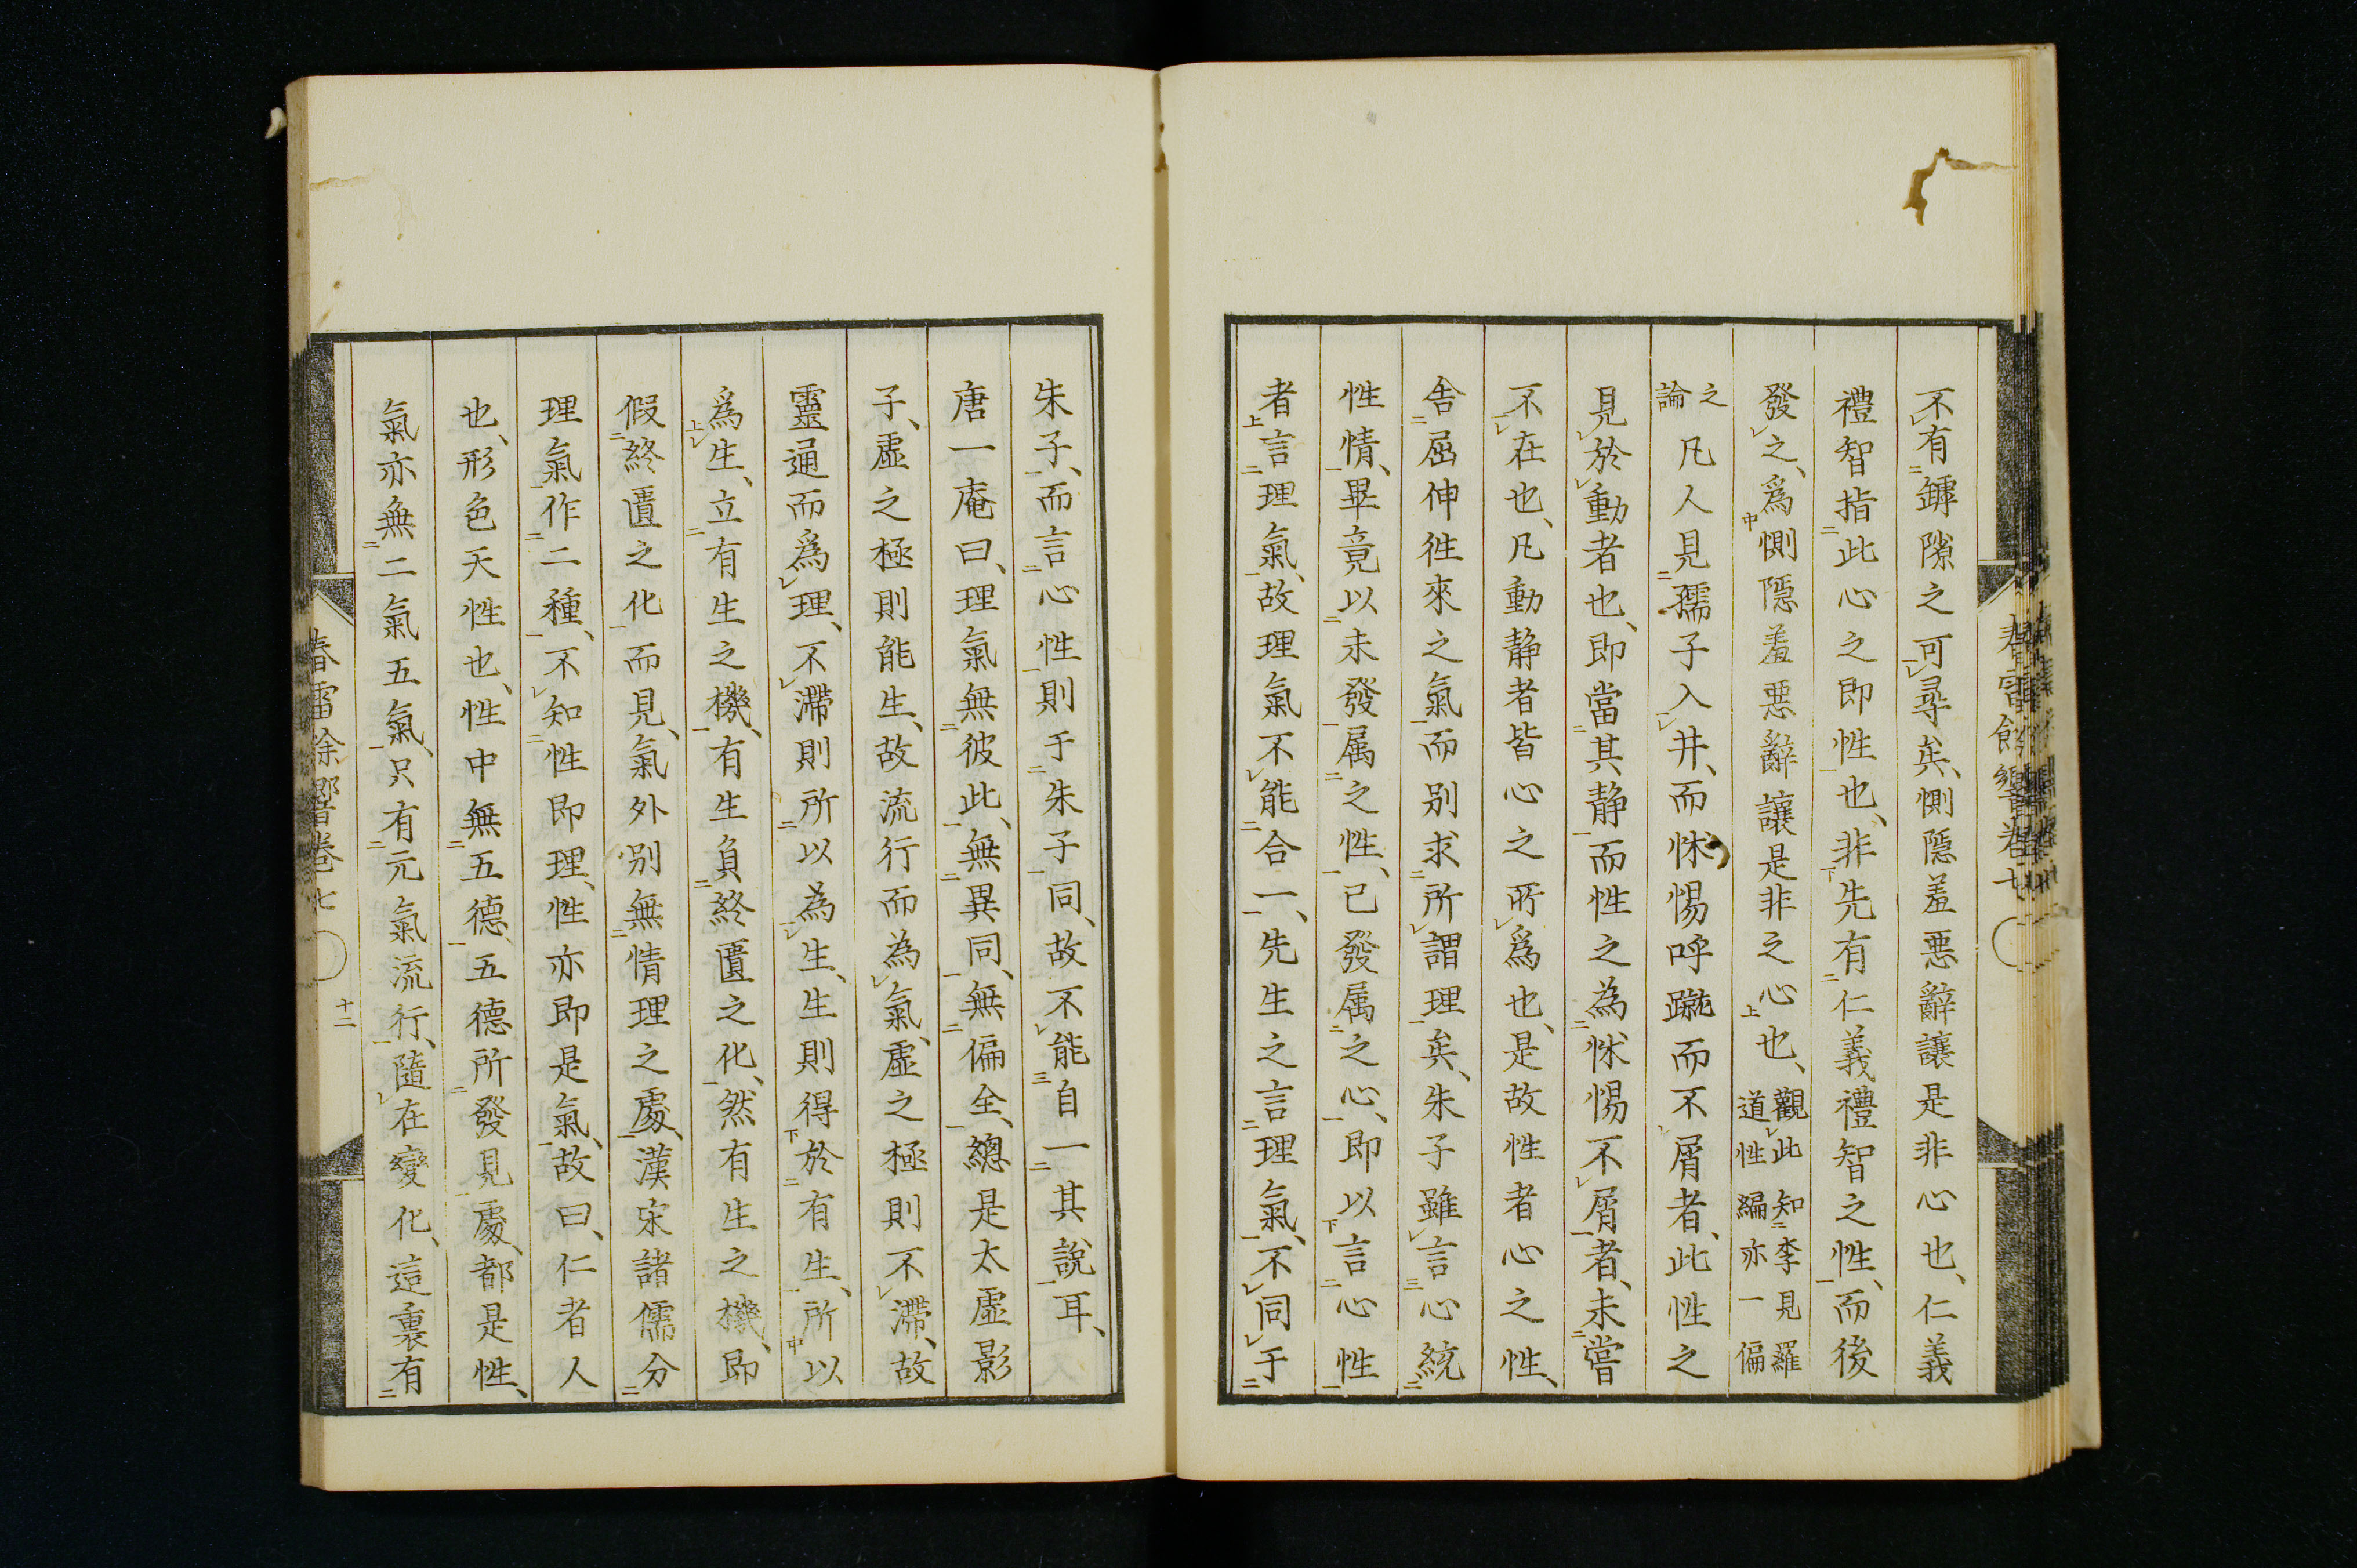 不有鏬隙之可尋矣、惻隱羞惡辭讓是非心也、仁義
禮智指此心之即性也、非先有仁義禮智之性、而後
發之、爲惻隱羞惡辭讓是非之心也、觀此知李見羅
道性編亦一偏
之論 凡人見孺子入井、而怵惕呼蹴而不屑者、此性之
見於動者也、即當其静而性之為怵惕不屑者、未嘗
不在也、凡動静者皆心之所爲也、是故性者心之性、
舍屈伸徃來之氣而别求所謂理矣、朱子雖言心統
性情、畢竟以未發属之性、已發属之心、即以言心性
者言理氣、故理氣不能合一、先生之言理氣、不同于
朱子、而言心性則于朱子同、故不能自一其說耳、
唐一庵曰、理氣無彼此、無異同、無偏全、總是太虛影
子、虛之極則能生、故流行而為氣、虛之極則不滯、故
靈通而爲理、不滯則所以為生、生則得於有生、所以
爲生、立有生之機、有生負終匱之化、然有生之機、即
假終匱之化而見、氣外别無情理之處、漢宋諸儒分
理氣作二種、不知性即理、性亦即是氣、故曰、仁者人
也、形色天性也、性中無五德、五德所發見處、都是性、
氣亦無二氣五氣、只有元氣流行、隨在變化、這裏有
春雷餘響卷七
十二